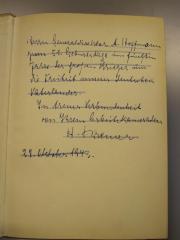 Herrn Generaldirektor A. Hoffmann
zum 50. Geburtstag im fünften
Jahre des großen Krieges um
die Freiheit unseres Deutschen
Vaterlandes
In treuer Verbundenheit
von Ihrem Arbeitskameraden
H.
29. Oktober